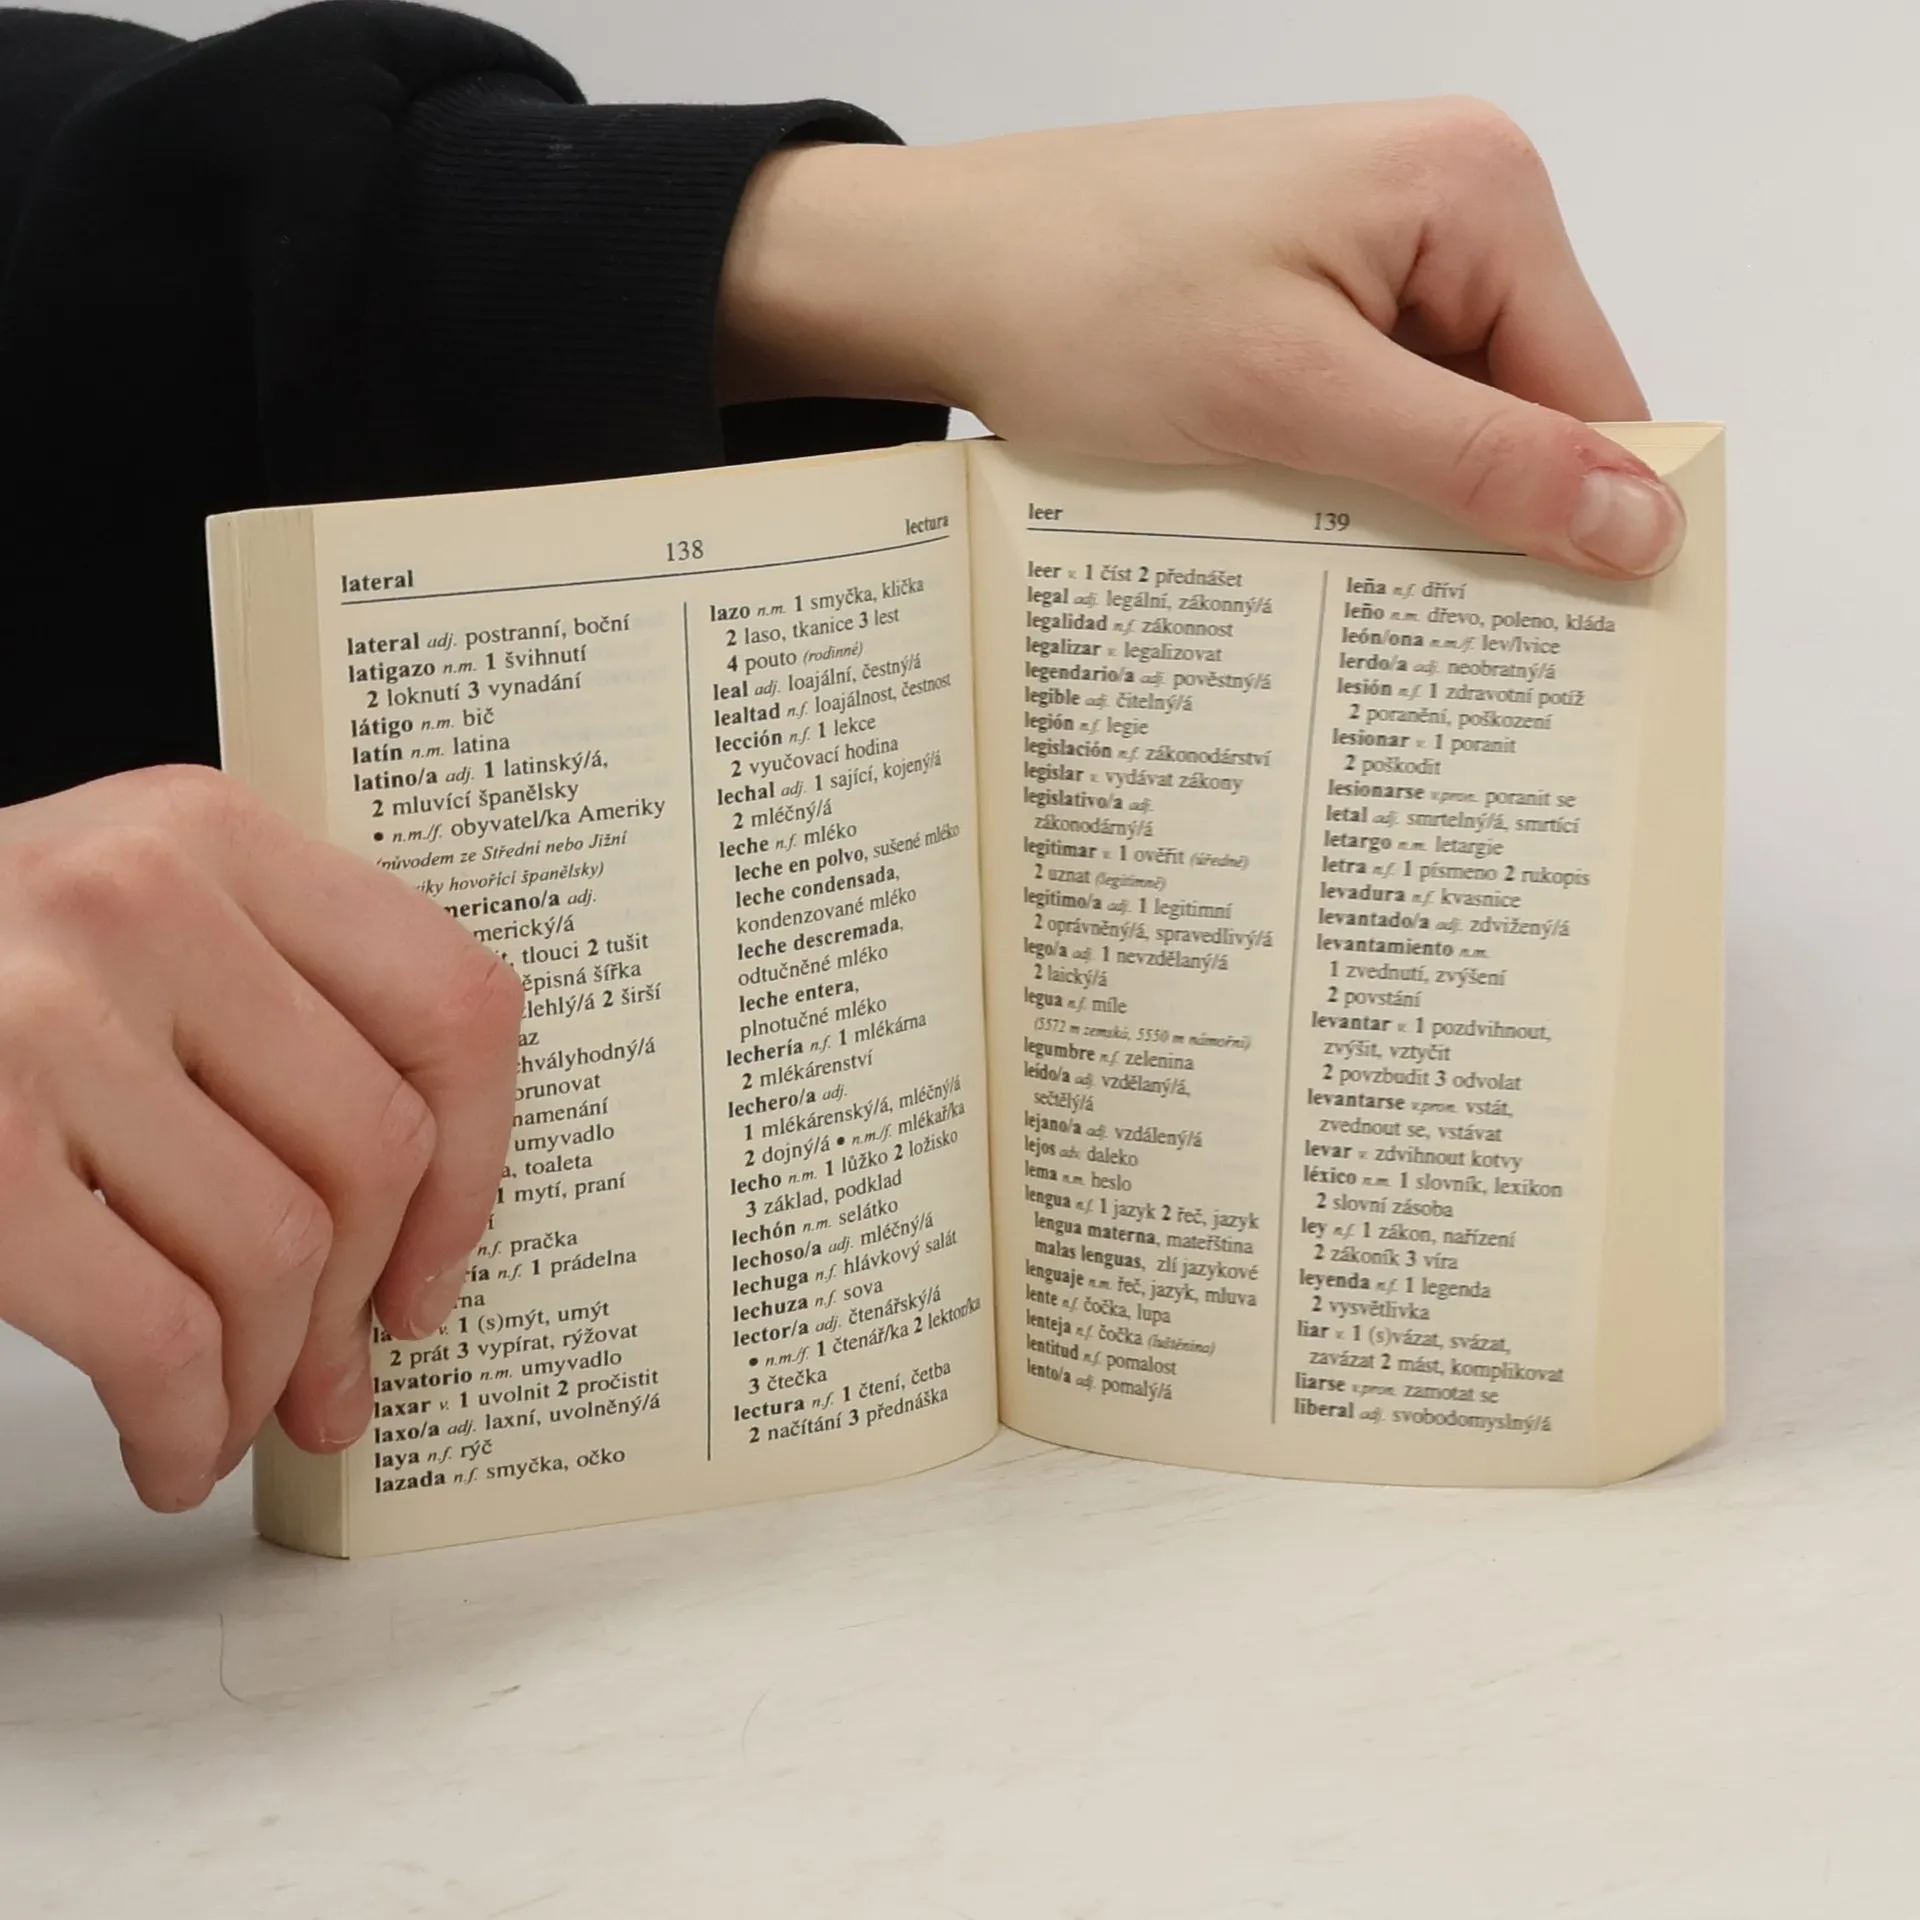 lateral
138
lectura
lateral adj. postranní, boční
latigazo n.m. 1 švihnutí
2 loknutí 3 vynadání
látigo n.m. bič
latín n.m. latina
latino/a adj. 1 latinský/á,
2 mluvící španělsky
• n.m./f. obyvatel/ka Ameriky
(původem ze Střední nebo Jižní
hovořící španělsky)
adj.
tlouci 2 tušit
šířka
2 širší
umyvadlo
toaleta
1 mytí, praní
n.f. pračka
n.f. 1 prádelna
v. 1 (s)mýt, umýt
2 prát 3 vypírat, rýžovat
lavatorio n.m. umyvadlo
laxar v. 1 uvolnit 2 pročistit
laxo/a adj. laxní, uvolněný/á
laya n.f. rýč
lazada n.f. smyčka, očko
lazo n.m. 1 smyčka, klička
2 laso, tkanice 3 lest
4 pouto (rodinné)
leal adj. loajální, čestný/á
lealtad n.f. loajálnost, čestnost
lección n.f. 1 lekce
2 vyučovací hodina
lechal adj. 1 sající, kojený/á
2 mléčný/á
leche n.f. mléko
leche en polvo, sušené mléko
leche condensada,
kondenzované mléko
leche descremada,
odtučněné mléko
leche entera,
plnotučné mléko
lechería n.f. 1 mlékárna
2 mlékárenství
lechero/a adj.
1 mlékárenský/á, mléčný/á
2 dojný/á • n.m./f. mlékař/ka
lecho n.m. 1 lůžko 2 ložisko
3 základ, podklad
lechón n.m. selátko
lechoso/a adj. mléčný/á
lechuga n.f. hlávkový salát
lechuza n.f. sova
lector/a adj. čtenářský/á
• n.m./f. 1 čtenář/ka 2 lektor/ka
3 čtečka
lectura n.f. 1 čtení, četba
2 načítání 3 přednáška
leer
139
leer v. 1 číst 2 přednášet
legal adj. legální, zákonný/á
legalidad n.f. zákonnost
legalizar v. legalizovat
legendario/a adj. pověstný/á
legible adj. čitelný/á
legión n.f. legie
legislación n.f. zákonodárství
legislar v. vydávat zákony
legislativo/a adj.
zákonodárný/á
legitimar v. 1 ověřit (úředně)
2 uznat (legitimně)
legítimo/a adj. 1 legitimní
2 oprávněný/á, spravedlivý/á
lego/a adj. 1 nevzdělaný/á
2 laický/á
legua n.f. míle
(5572 m zemská, 5550 m námořní)
legumbre n.f. zelenina
leído/a adj. vzdělaný/á,
sečtělý/á
lejano/a adj. vzdálený/á
lejos adv. daleko
lema n.m. heslo
lengua n.f. 1 jazyk 2 řeč, jazyk
lengua materna, mateřština
malas lenguas, zlí jazykové
lenguaje n.m. řeč, jazyk, mluva
lente n.f. čočka, lupa
lenteja n.f. čočka (luštěnina)
lentitud n.f. pomalost
lento/a adj. pomalý/á
leña n.f. dříví
leño n.m. dřevo, poleno, kláda
león/ona n.m./f. lev/lvice
lerdo/a adj. neobratný/á
lesión n.f. 1 zdravotní potíž
2 poranění, poškození
lesionar v. 1 poranit
2 poškodit
lesionarse v.pron. poranit se
letal adj. smrtelný/á, smrtící
letargo n.m. letargie
letra n.f. 1 písmeno 2 rukopis
levadura n.f. kvasnice
levantado/a adj. zdvižený/á
levantamiento n.m.
1 zvednutí, zvýšení
2 povstání
levantar v. 1 pozdvihnout,
zvýšit, vztyčit
2 povzbudit 3 odvolat
levantarse v.pron. vstát,
zvednout se, vstávat
levar v. zdvihnout kotvy
léxico n.m. 1 slovník, lexikon
2 slovní zásoba
ley n.f. 1 zákon, nařízení
2 zákoník 3 víra
leyenda n.f. 1 legenda
2 vysvětlivka
liar v. 1 (s)vázat, svázat,
zavázat 2 mást, komplikovat
liarse v.pron. zamotat se
liberal adj. svobodomyslný/á